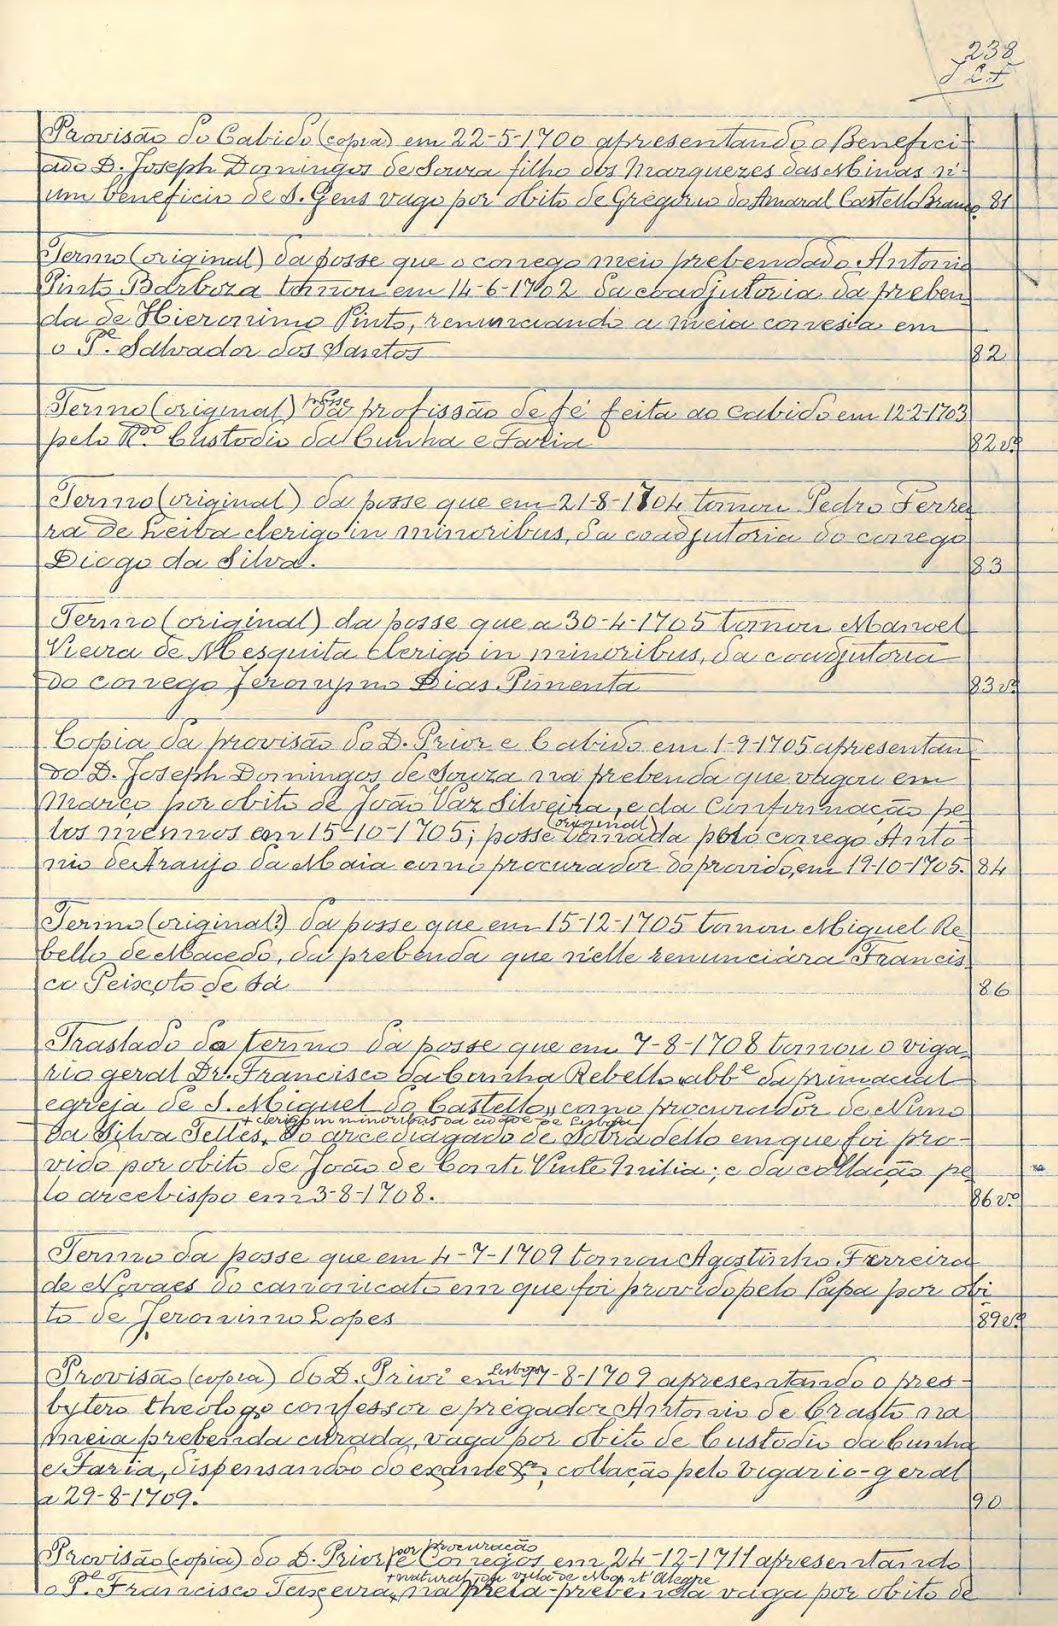 238
Provisão do Cabido (copia) em 22-5-1700 apresentando o Benefici-
ado D. Joseph Domingos de Souza filho dos Marquezes das Minas n'
um beneficio de S. Gens vago por obito de Gregorio do Amaral Castello Branco 81
Termo (original) da posse que o conego meio prebendado Antonio
Pinto Barboza tomou em 14-6-1702 da coadjutoria da preben-
da de Hieronimo Pinto, renunciando a meia conesia em
o Pe. Salvador dos Santos 82
Termo (original) da posse profissão de fé feita ao cabido em 12-2-1703
pelo Rdo. Custodio da Cunha e Faria 82 vº
Termo (original) da posse que em 21-8-1704 tomou Pedro Ferrei
ra de Leiva clerigo in minoribus, da coadjutoria do conego
Diogo da Silva. 83
Termo (original) da posse que a 30-4-1705 tomou Manoel
Vieira de Mesquita clerigo in minoribus, da coadjutoria
do conego Jeronymo Dias Pimenta 83 vº
Copia da provisão do D. Prior e Cabido em 1-9-1705 apresentan
do D. Joseph Domingos de Souza na prebenda que vagou em
Março por obito de João Vaz Silveira, e da confirmação pe-
los mesmos em 15-10-1705; posse (original) tomada pelo conego Anto-
nio de Araujo da Maia como procurador do provido, em 19-10-1705. 84
Termo (original?) da posse que em 15-12-1705 tomou Miguel Re-
bello de Macedo, da prebenda que n'elle renunciára Francis
co Peixoto de Sá 86
Traslado do termo da posse que em 7-8-1708 tomou o viga-
rio geral Dr. Francisco da Cunha Rebello abbe da primacial
egreja de S. Miguel do Castello, como procurador de Nuno
+ clerigo in minoribus da cidade de Lisboa
da Silva Telles, + do arcediagado de Sobradello em que foi pro-
vido por obito de João de Conti Vintemilia; e da collação pe
lo arcebispo em 3-8-1708. 86 vº
Termo da posse que em 4-7-1709 tomou Agostinho Ferreira
de Novaes do canonicato em que foi provido pelo Papa por obi-
to de Jeronimo Lopes 89 vº
Provisão (copia) do D. Prior em Lisboa 17-8-1709 apresentando o pres-
bytero theologo confessor e pregador Antonio de Crasto na
meia prebenda curada, vaga por obito de Custodio da Cunha
e Faria, dispensando-o do exame &; collação pelo vigario-geral
a 29-8-1709. 90
por procuração
Provisão (copia) do D. Prior e Conegos em 24-12-1711 apresentando
+ natural da villa de Mont'Alegre
o Pe. Francisco Teixeira, + na meia-prebenda vaga por obito de